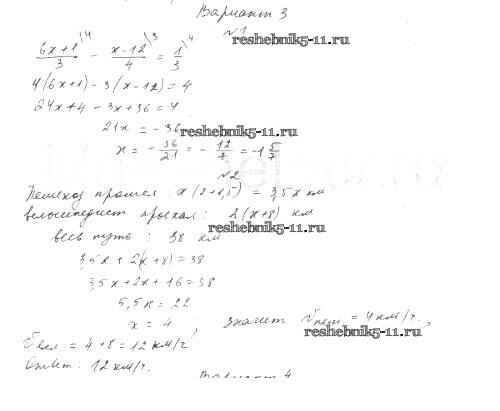 Вариант 3
№1
reshebnik5-11.ru
(6x+1)/3 \4 - (x-12)/4 \3 = 1/3 \4
4(6x+1)-3(x-12)=4
24x+4-3x+36=4
21x = -36
reshebnik5-11.ru
x = -36/21 = -12/7 = -1 5/7
№2
Пешеход прошел x(2+1,5) = 3,5x км
велосипедист проехал: 2(x+8) км
весь путь: 38 км
3,5x + 2(x+8)=38
3,5x+2x+16=38
reshebnik5-11.ru
5,5x = 22
x = 4, значит Vпеш = 4 км/ч.,
Vвел = 4+8=12 км/ч
Ответ: 12 км/ч.
Вариант 4